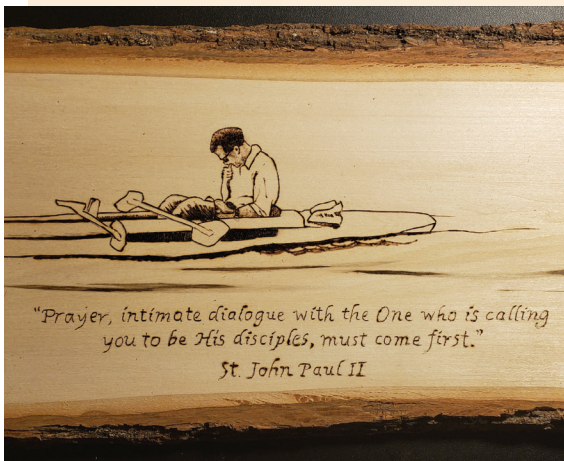 “Prayer, intimate dialogue with the One who is calling
you to be His disciples, must come first.”
St. John Paul II